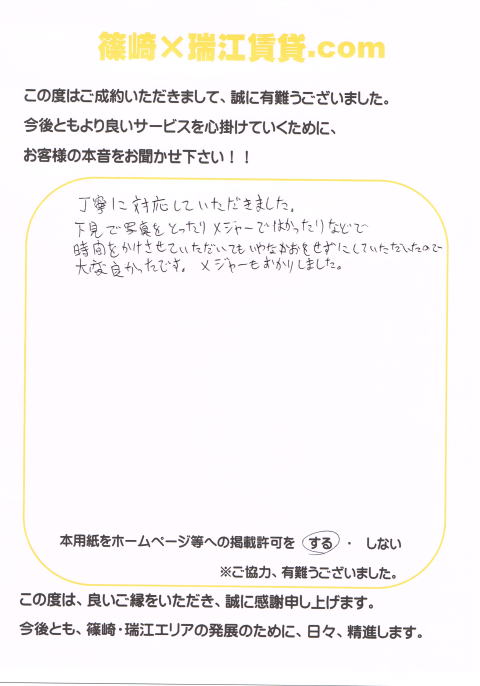 篠崎×瑞江賃貸.com
この度はご成約いただきまして、誠に有難うございました。
今後ともより良いサービスを心掛けていくために、
お客様の本音をお聞かせ下さい！！
丁寧に対応していただきました。
下見で写真をとったりメジャーではかったりなどで
時間をかけさせていただいてもいやなかおをせずにしていただいたので
大変良かったです。 メジャーもおかりしました。
本用紙をホームページ等への掲載許可を する ・ しない
※ご協力、有難うございました。
この度は、良いご縁をいただき、誠に感謝申し上げます。
今後とも、篠崎・瑞江エリアの発展のために、日々、精進します。